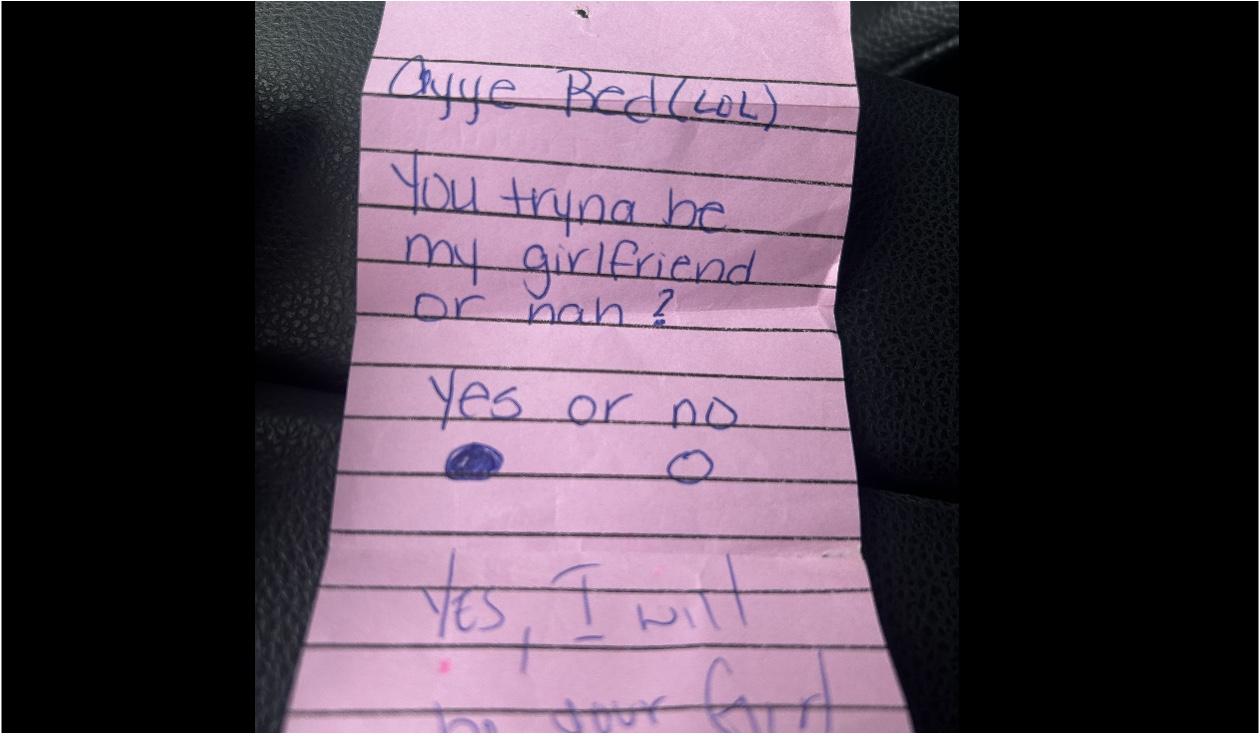 Ayye Bed (LOL)
You tryna be
my girlfriend
or nah?
yes or no
Yes, I will
be your Girl